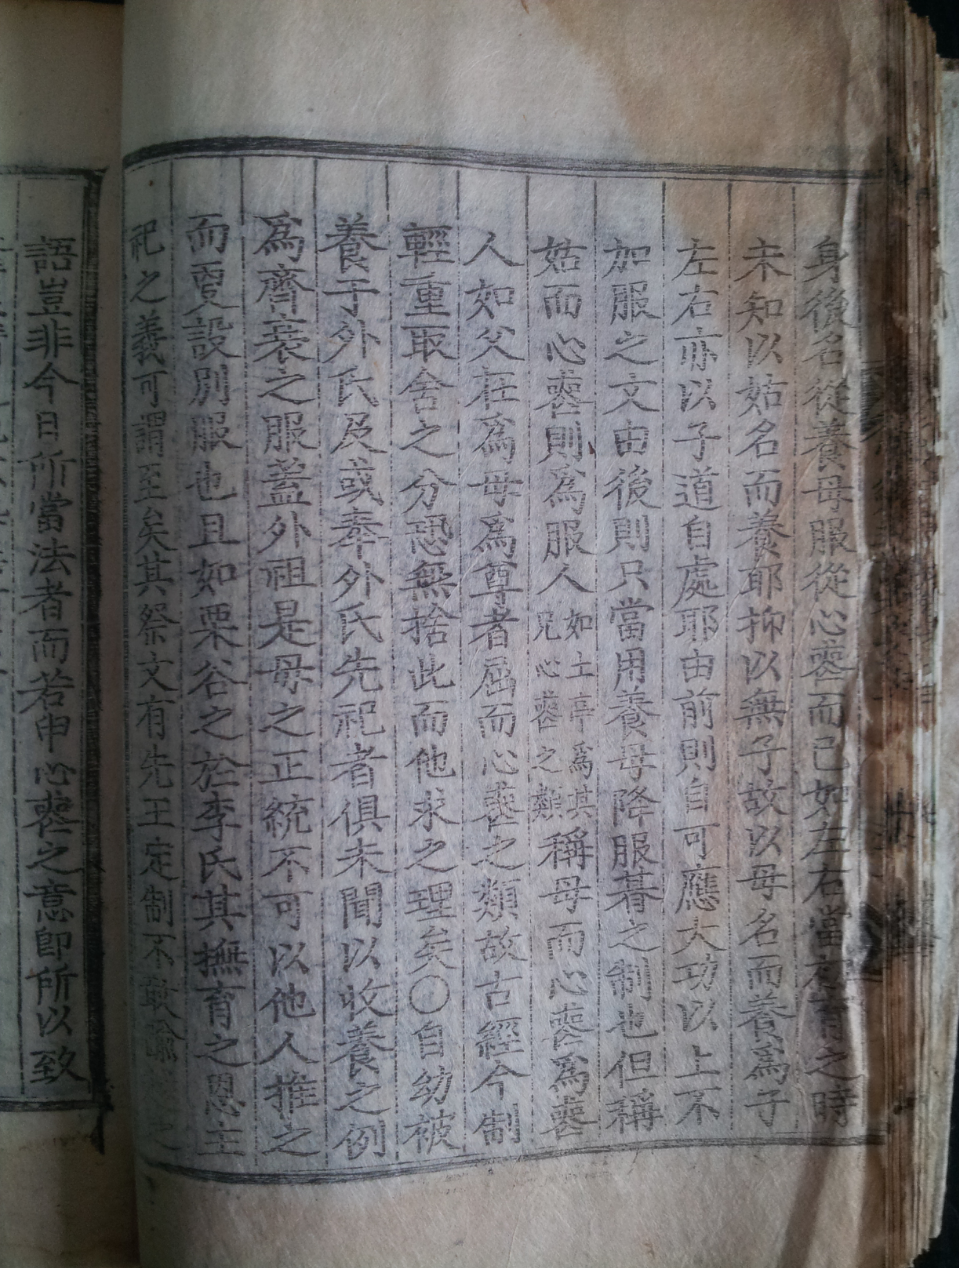 身後名從養母服從心喪而已如左右當初育之時
未知以姑名而養耶抑以無子故以母名而養爲子
左右亦以子道自處耶由前則自可應大功以上不
加服之文由後則只當用養母降服朞之制也但稱
姑而心喪則爲服人如士亭爲其兄心喪之類稱母而心喪爲喪
人如父在爲母爲尊者屈而心喪之類故古經今制
輕重取舍之分恐無捨此而他求之理矣〇自幼被
養于外氏及或奉外氏先祀者俱未聞以收養之例
爲齊衰之服蓋外祖是母之正統不可以他人推之
而變設別服也且如栗谷之於李氏其撫育之恩主
祀之義可謂至矣其祭文有先王定制不敢踰
語豈非今日所當法者而若申心喪之意卽所以致